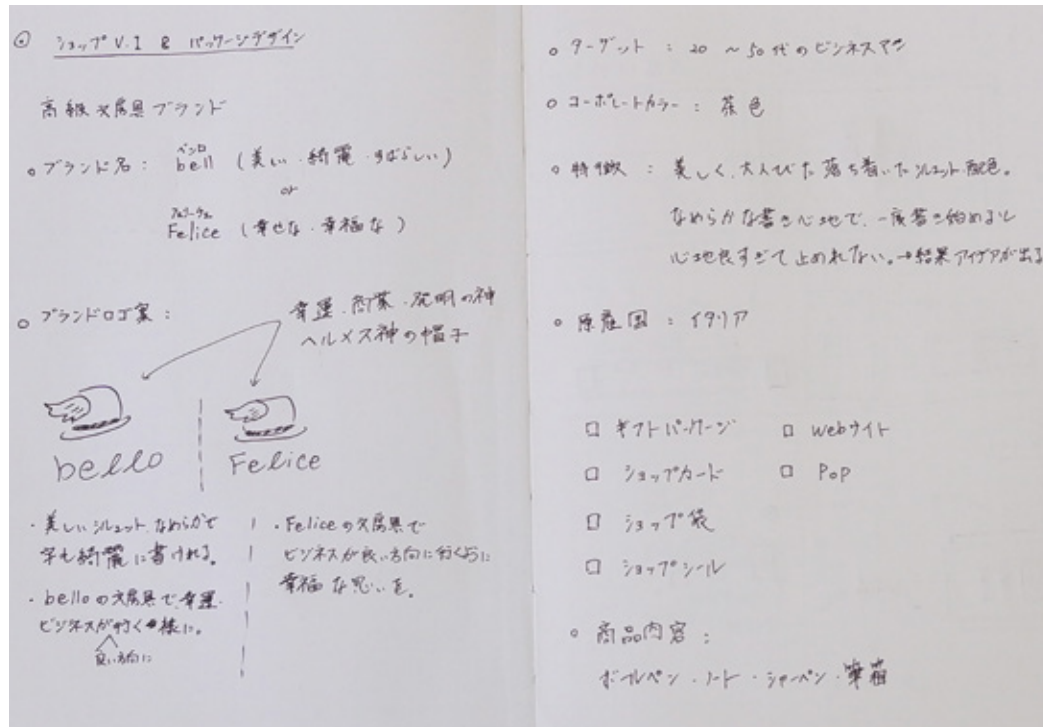 ショップ V.I & パッケージデザイン
高級文房具ブランド
ブランド名: bell (美しい・綺麗・すばらしい)
or
フェリーチェ
Felice (幸せな・幸福な)
ブランドロゴ案:
幸運・商業・発明の神
ヘルメス神の帽子
bello
Felice
・美しいシルエット、なめらかで
字も綺麗に書ける。
・belloの文房具で、幸運・
ビジネスが行く様に。
良い方向に
・Feliceの文房具で
ビジネスが良い方向に行くように
幸福な思いを。
ターゲット : 20 〜 50代のビジネスマン
コーポレートカラー : 茶色
特徴 : 美しく、大人びた落ち着いたシルエット・配色。
なめらかな書き心地で、一度書き始めると
心地良すぎて止めれない。→結果アイデアが出る
原産国 : イタリア
□ ギフトパッケージ □ Webサイト
□ ショップカード □ PoP
□ ショップ袋
□ ショップシール
商品内容 :
ボールペン・ノート・シャーペン・筆箱